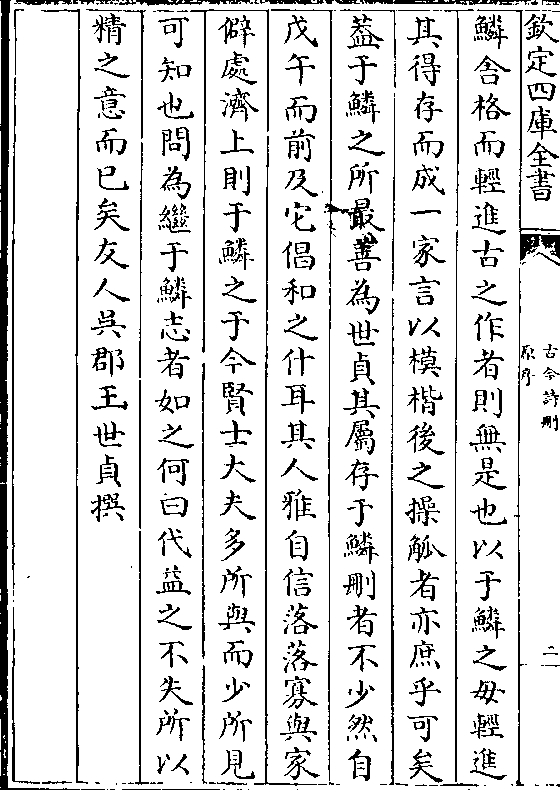 欽定四庫全書
古今詩刪
原序
二
鱗舍格而輕進古之作者則無是也以于鱗之毋輕進
其得存而成一家言以模楷後之操觚者亦庶乎可矣
葢于鱗之所最善為世貞其屬存于鱗刪者不少然自
戊午而前及它倡和之什耳其人雅自信落落寡與家
僻處濟上則于鱗之于今賢士大夫多所與而少所見
可知也問為繼于鱗志者如之何曰代益之不失所以
精之意而已矣友人吳郡王世貞撰